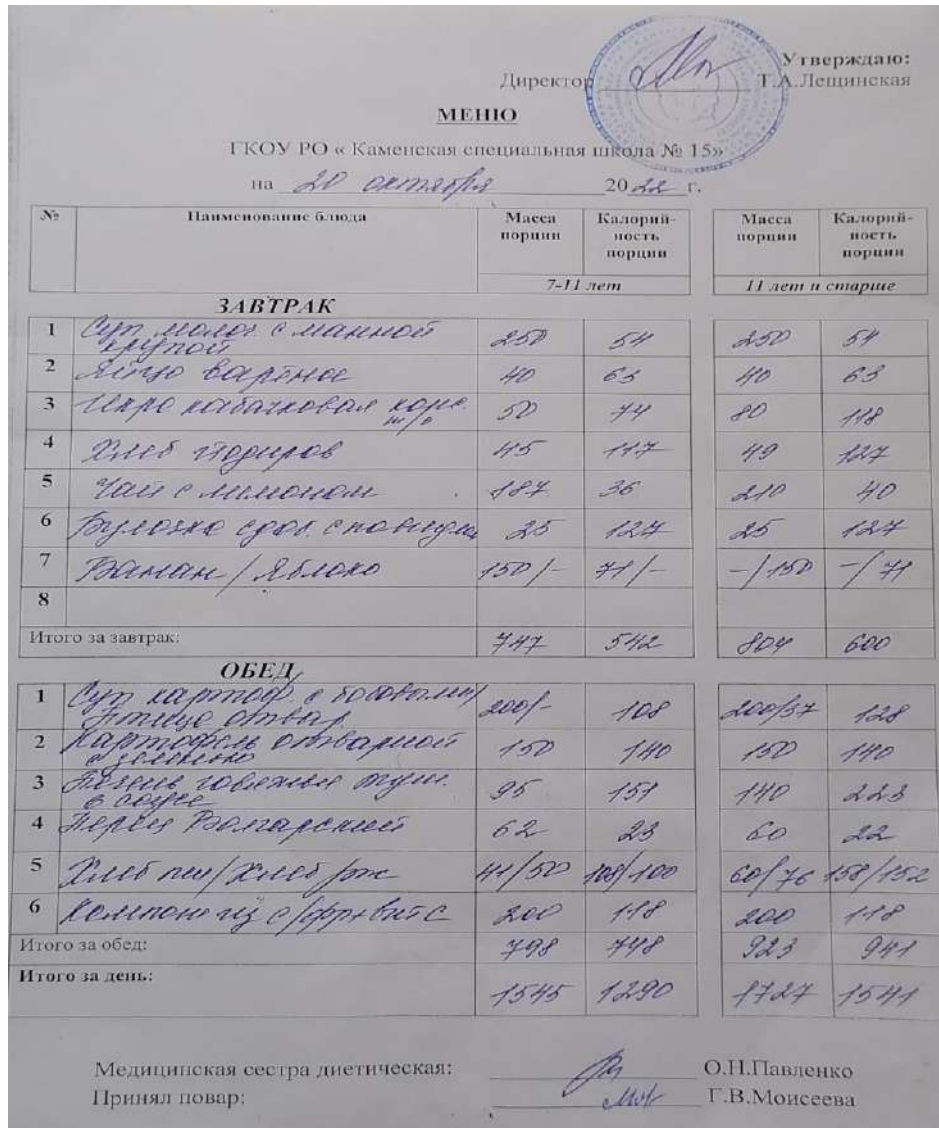 Утверждаю:
Директор Т.А.Лещинская
МЕНЮ
ГКОУ РО « Каменская специальная школа № 15»
на 20 октября 2022 г.
№ Наименование блюда Масса порции Калорий-ность порции Масса порции Калорий-ность порции
7-11 лет 11 лет и старше
ЗАВТРАК
1 Суп молоч с манной 250 54 250 54
крупой
2 Яйцо вареное 40 63 40 63
3 Икра кабачковая конс. 50 74 80 118
4 Хлеб йодиров 45 117 49 127
5 Чай с лимоном 187 36 210 40
6 Булочка сдоб. с повидлом 25 127 25 127
7 Банан / Яблоко 150/- 71/- -/150 -/71
8
Итого за завтрак: 747 542 804 600
ОБЕД
1 Суп картоф. с бобовыми/ 200/- 108 200/37 128
Птица отвар.
2 Картофель отварной 150 140 150 140
с зеленью
3 Печень говяжья туш. 95 151 140 223
в соусе
4 Перец Болгарский 62 23 60 22
5 Хлеб пш/Хлеб рж 41/50 108/100 60/76 158/152
6 Компот из с/фр+вит с 200 118 200 118
Итого за обед: 798 748 923 941
Итого за день: 1545 1290 1727 1541
Медицинская сестра диетическая: О.Н.Павленко
Принял повар: Г.В.Моисеева